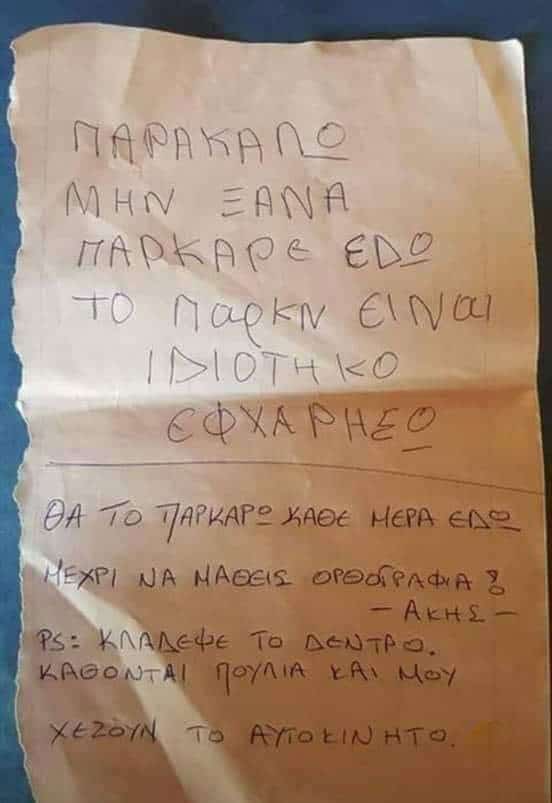 ΠΑΡΑΚΑΛΩ
ΜΗΝ ΞΑΝΑ
ΠΑΡΚΑΡΕ ΕΔΩ
ΤΟ ΠαρκΝ ΕΙΝαΙ
ΙΔΙΟΤΗΚΟ
ΕΦΧΑΡΗΣΟ
ΘΑ ΤΟ ΠΑΡΚΑΡΩ ΚΑΘΕ ΜΕΡΑ ΕΔΩ
ΜΕΧΡΙ ΝΑ ΜΑΘΕΙΣ ΟΡΘΟΓΡΑΦΙΑ!
- ΑΚΗΣ -
PS: ΚΛΑΔΕΨΕ ΤΟ ΔΕΝΤΡΟ.
ΚΑΘΟΝΤΑΙ ΠΟΥΛΙΑ ΚΑΙ ΜΟΥ
ΧΕΖΟΥΝ ΤΟ ΑΥΤΟΚΙΝΗΤΟ.